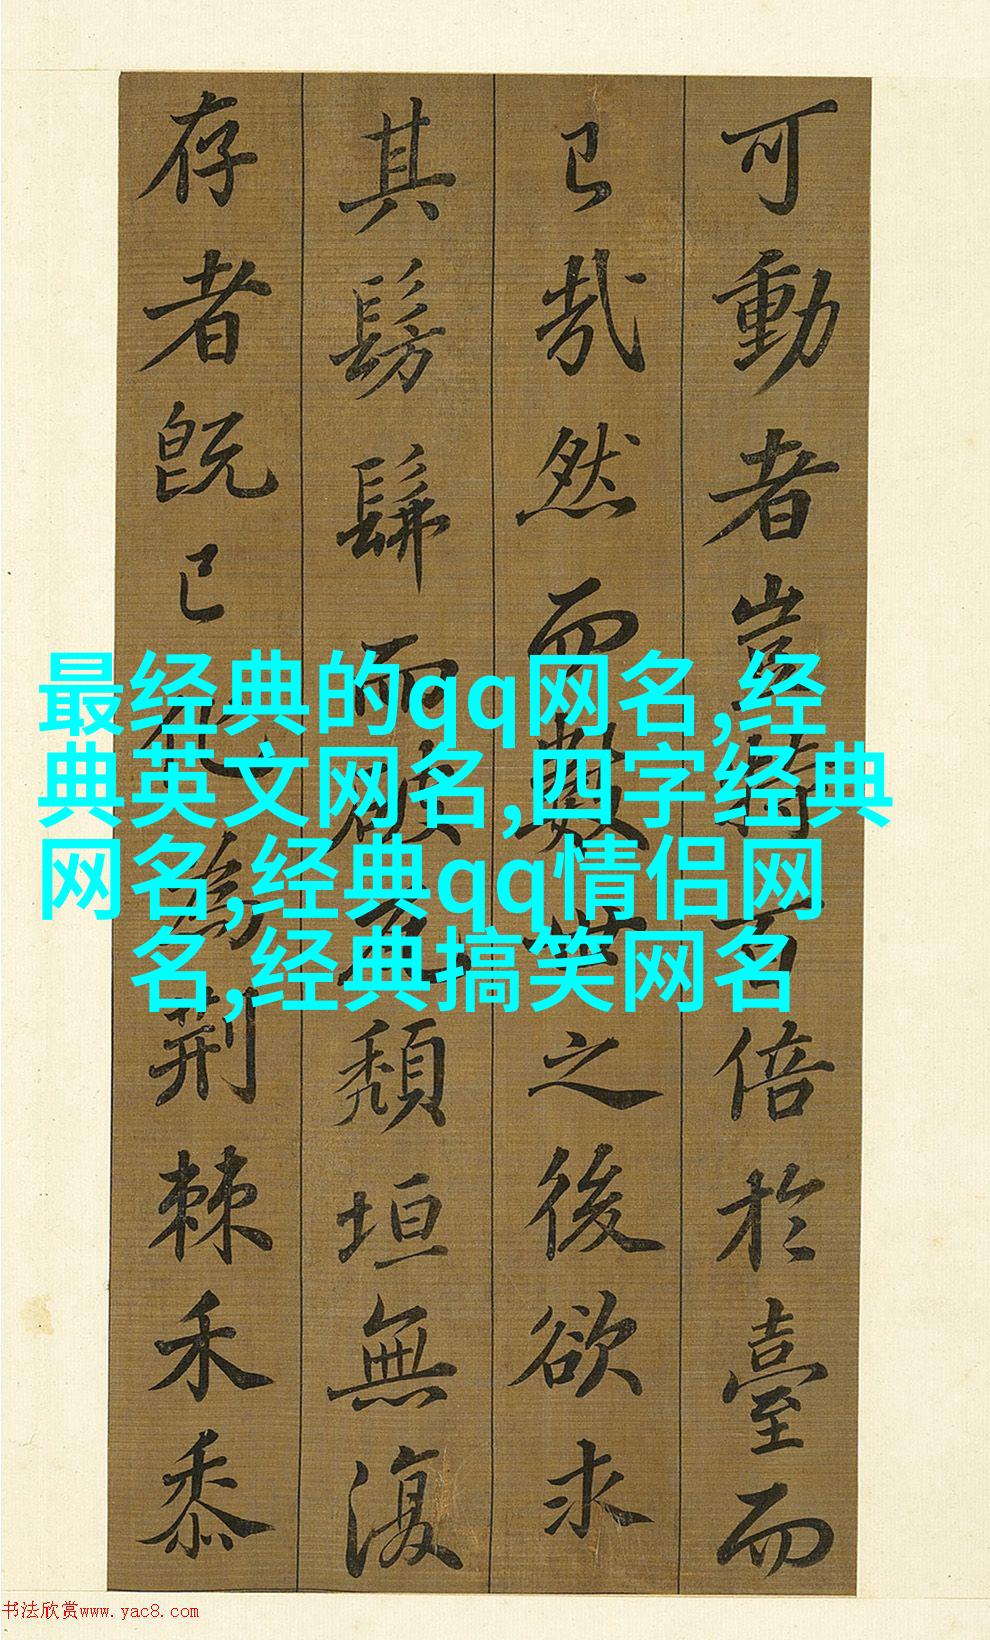 可動者豈特百倍於臺而
已哉然而數世之後欲求
其髣髴而破瓦頹垣無復
存者既已化為荊棘禾黍
最经典的qq网名,经
典英文网名,四字经典
网名,经典qq情侣网
名,经典搞笑网名
书法欣赏www.yac8.com